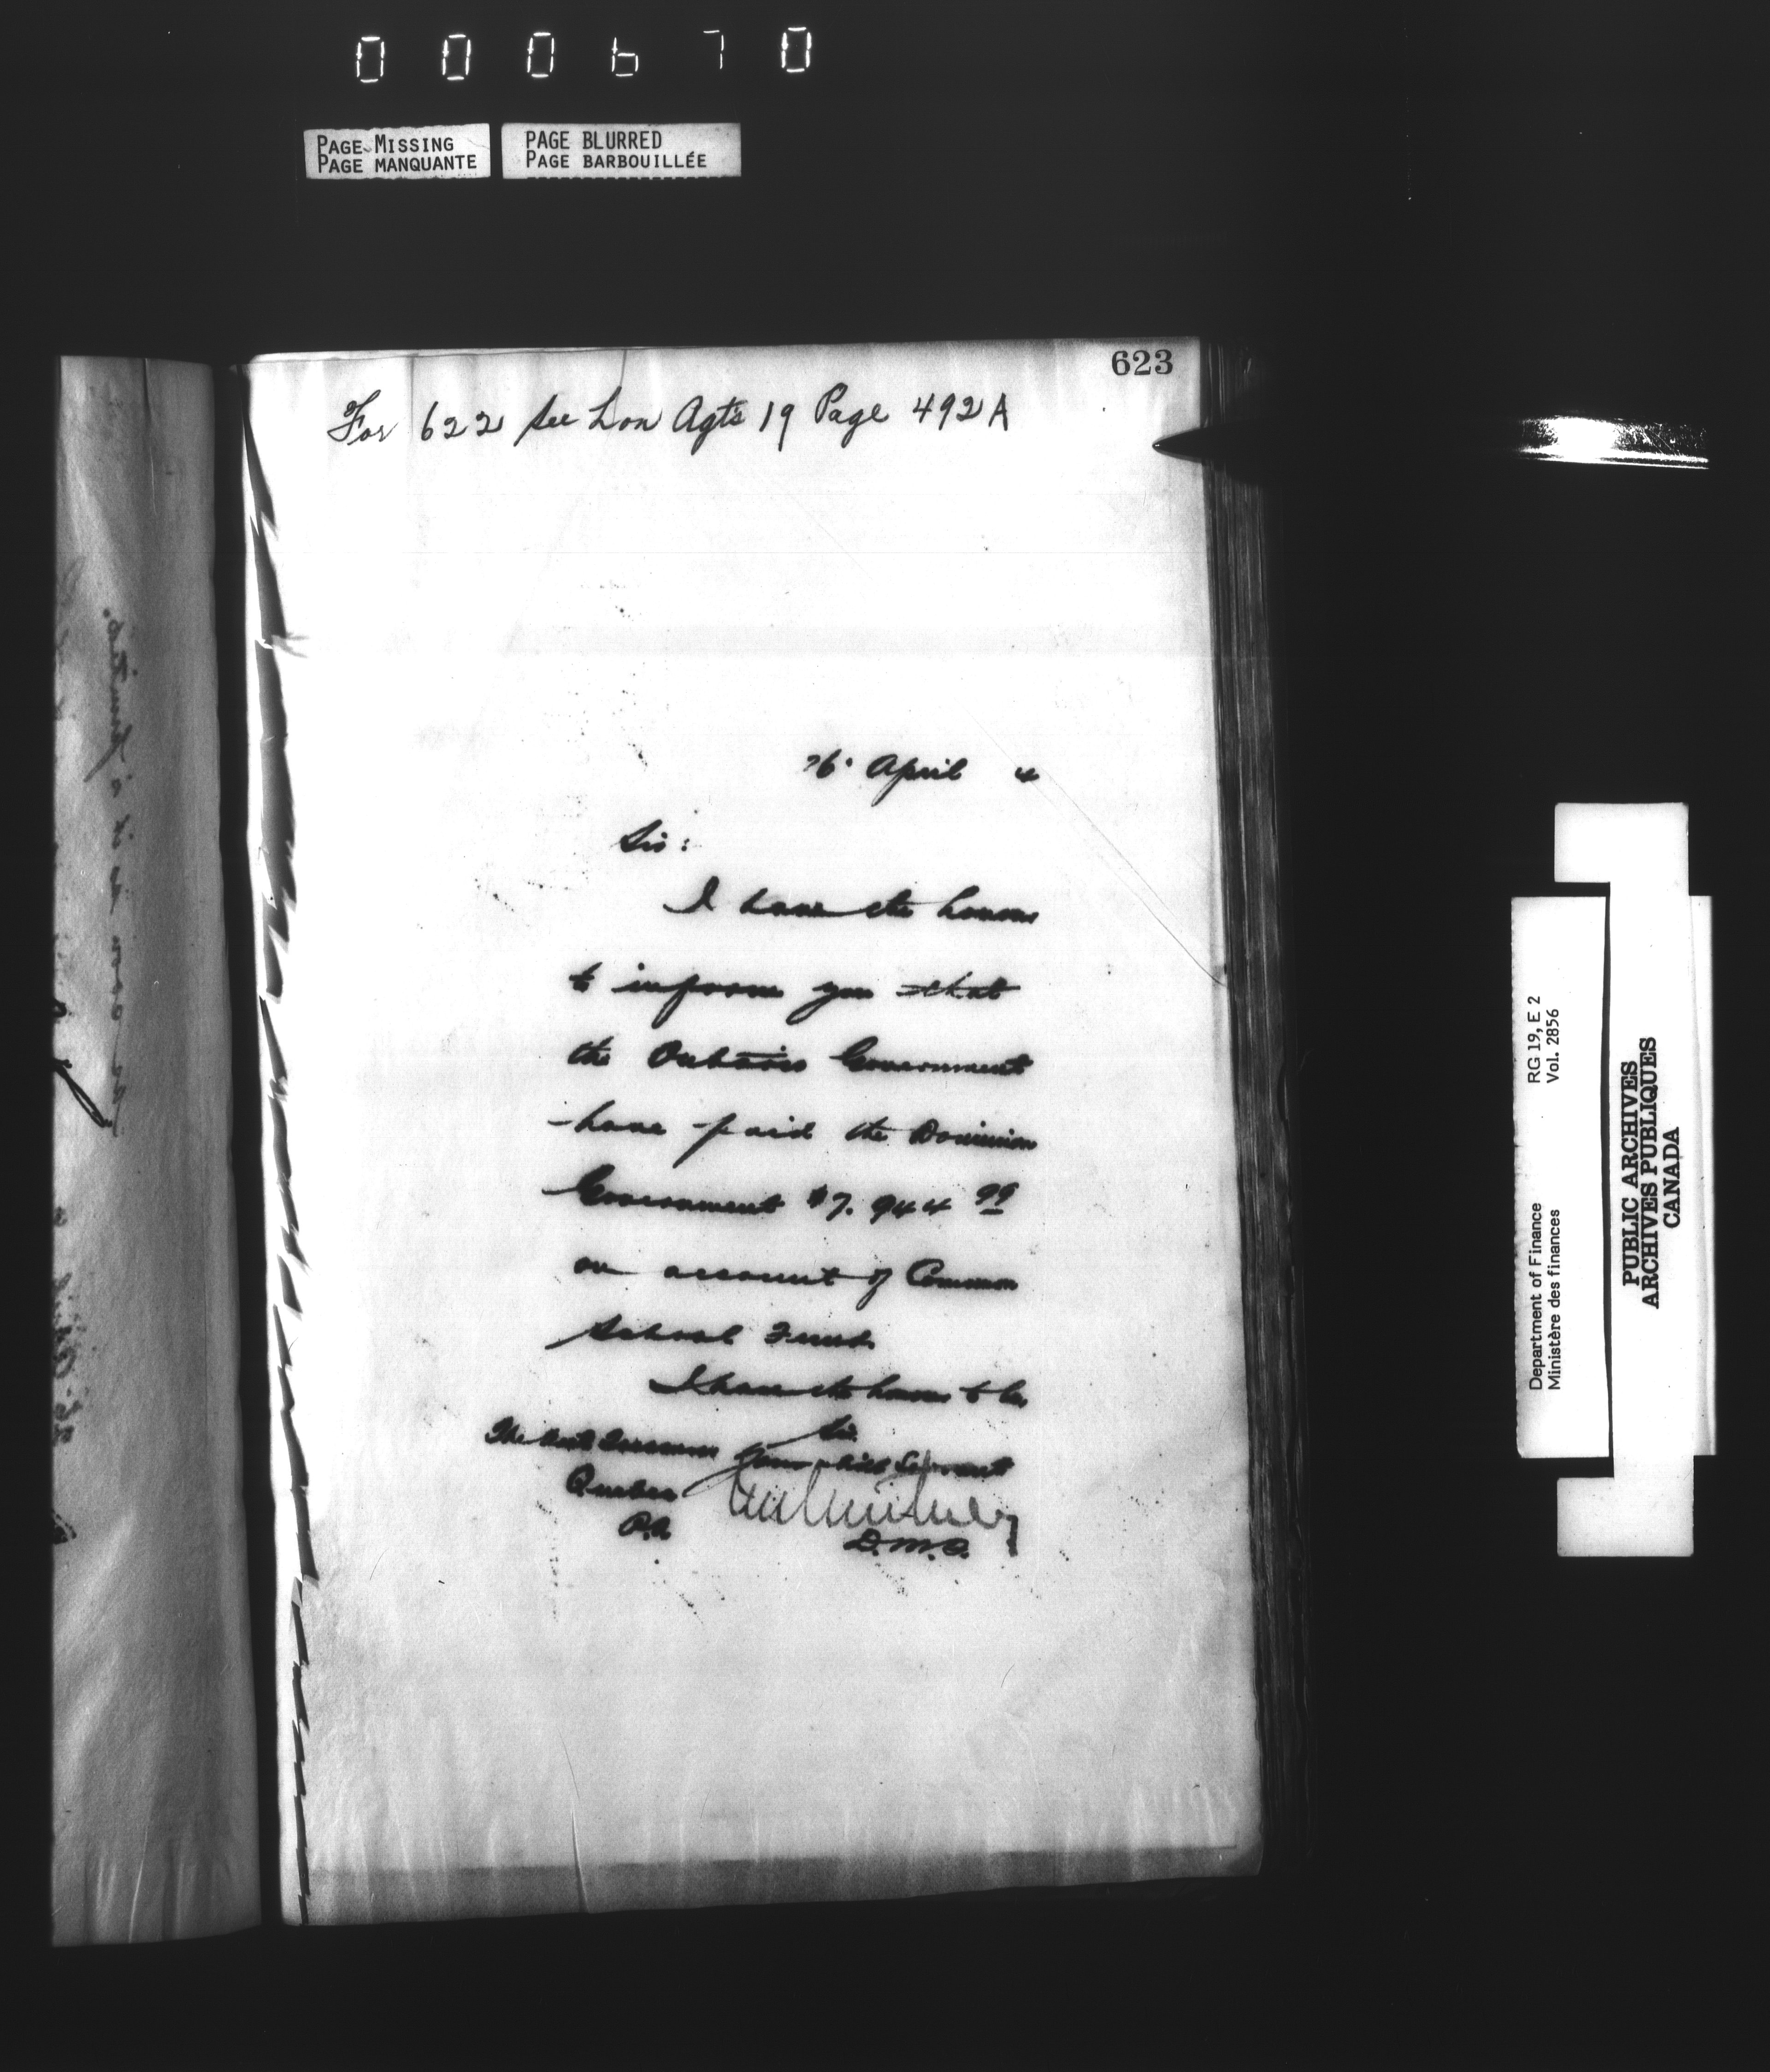 000670
PAGE MISSING
PAGE MANQUANTE
PAGE BLURRED
PAGE BARBOUILLÉE
623
For 622 see Lon Agts 19 Page 492A
26 April 4
Sir:
I have the honour
to inform you that
the Ontario Government
have paid the Dominion
Government $7.944 99
on account of Common
School Fund.
I have the honour to be,
Sir
The
Your obdt Servant
Quebec
P.Q.
D.M.F.
RG 19, E 2
Vol. 2856
Department of Finance
Ministère des finances
PUBLIC ARCHIVES
ARCHIVES PUBLIQUES
CANADA